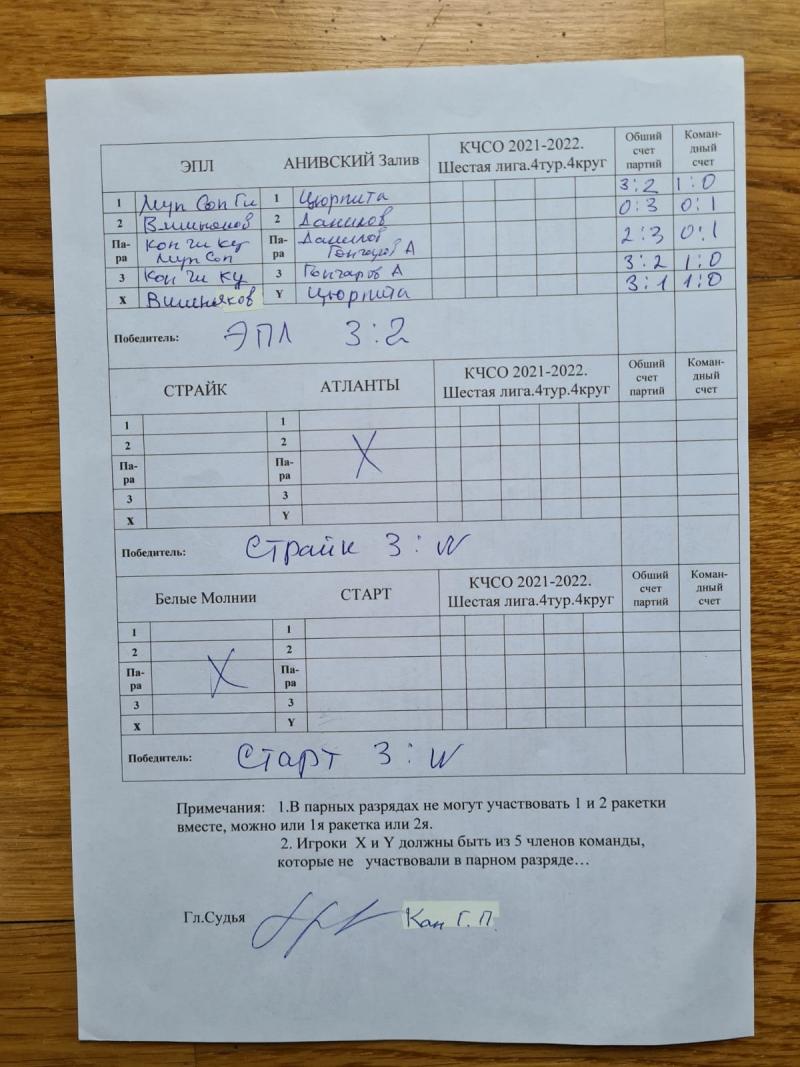 ЭПЛ АНИВСКИЙ Залив КЧСО 2021-2022. Шестая лига.4тур.4круг Обший счет партий Коман-дный счет
1 Мун Соп Ги 1 Цюрпита 3:2 1:0
2 Вишняков 2 Данилов 0:3 0:1
Па-ра Кон Чи Ку Мун Соп Па-ра Данилов Гончаров А 2:3 0:1
3 Кон Чи Ку 3 Гончаров А 3:2 1:0
X Вишняков Y Цюрпита 3:1 1:0
Победитель: ЭПЛ 3:2
СТРАЙК АТЛАНТЫ КЧСО 2021-2022. Шестая лига.4тур.4круг Обший счет партий Коман-дный счет
1 1
2 2 X
Па-ра Па-ра
3 3
X Y
Победитель: Страйк 3:N
Белые Молнии СТАРТ КЧСО 2021-2022. Шестая лига.4тур.4круг Обший счет партий Коман-дный счет
1 1
2 2
Па-ра X Па-ра
3 3
X Y
Победитель: Старт 3:N
Примечания: 1.В парных разрядах не могут участвовать 1 и 2 ракетки
вместе, можно или 1я ракетка или 2я.
2. Игроки X и Y должны быть из 5 членов команды,
которые не участвовали в парном разряде…
Гл.Судья Кан Г.П.